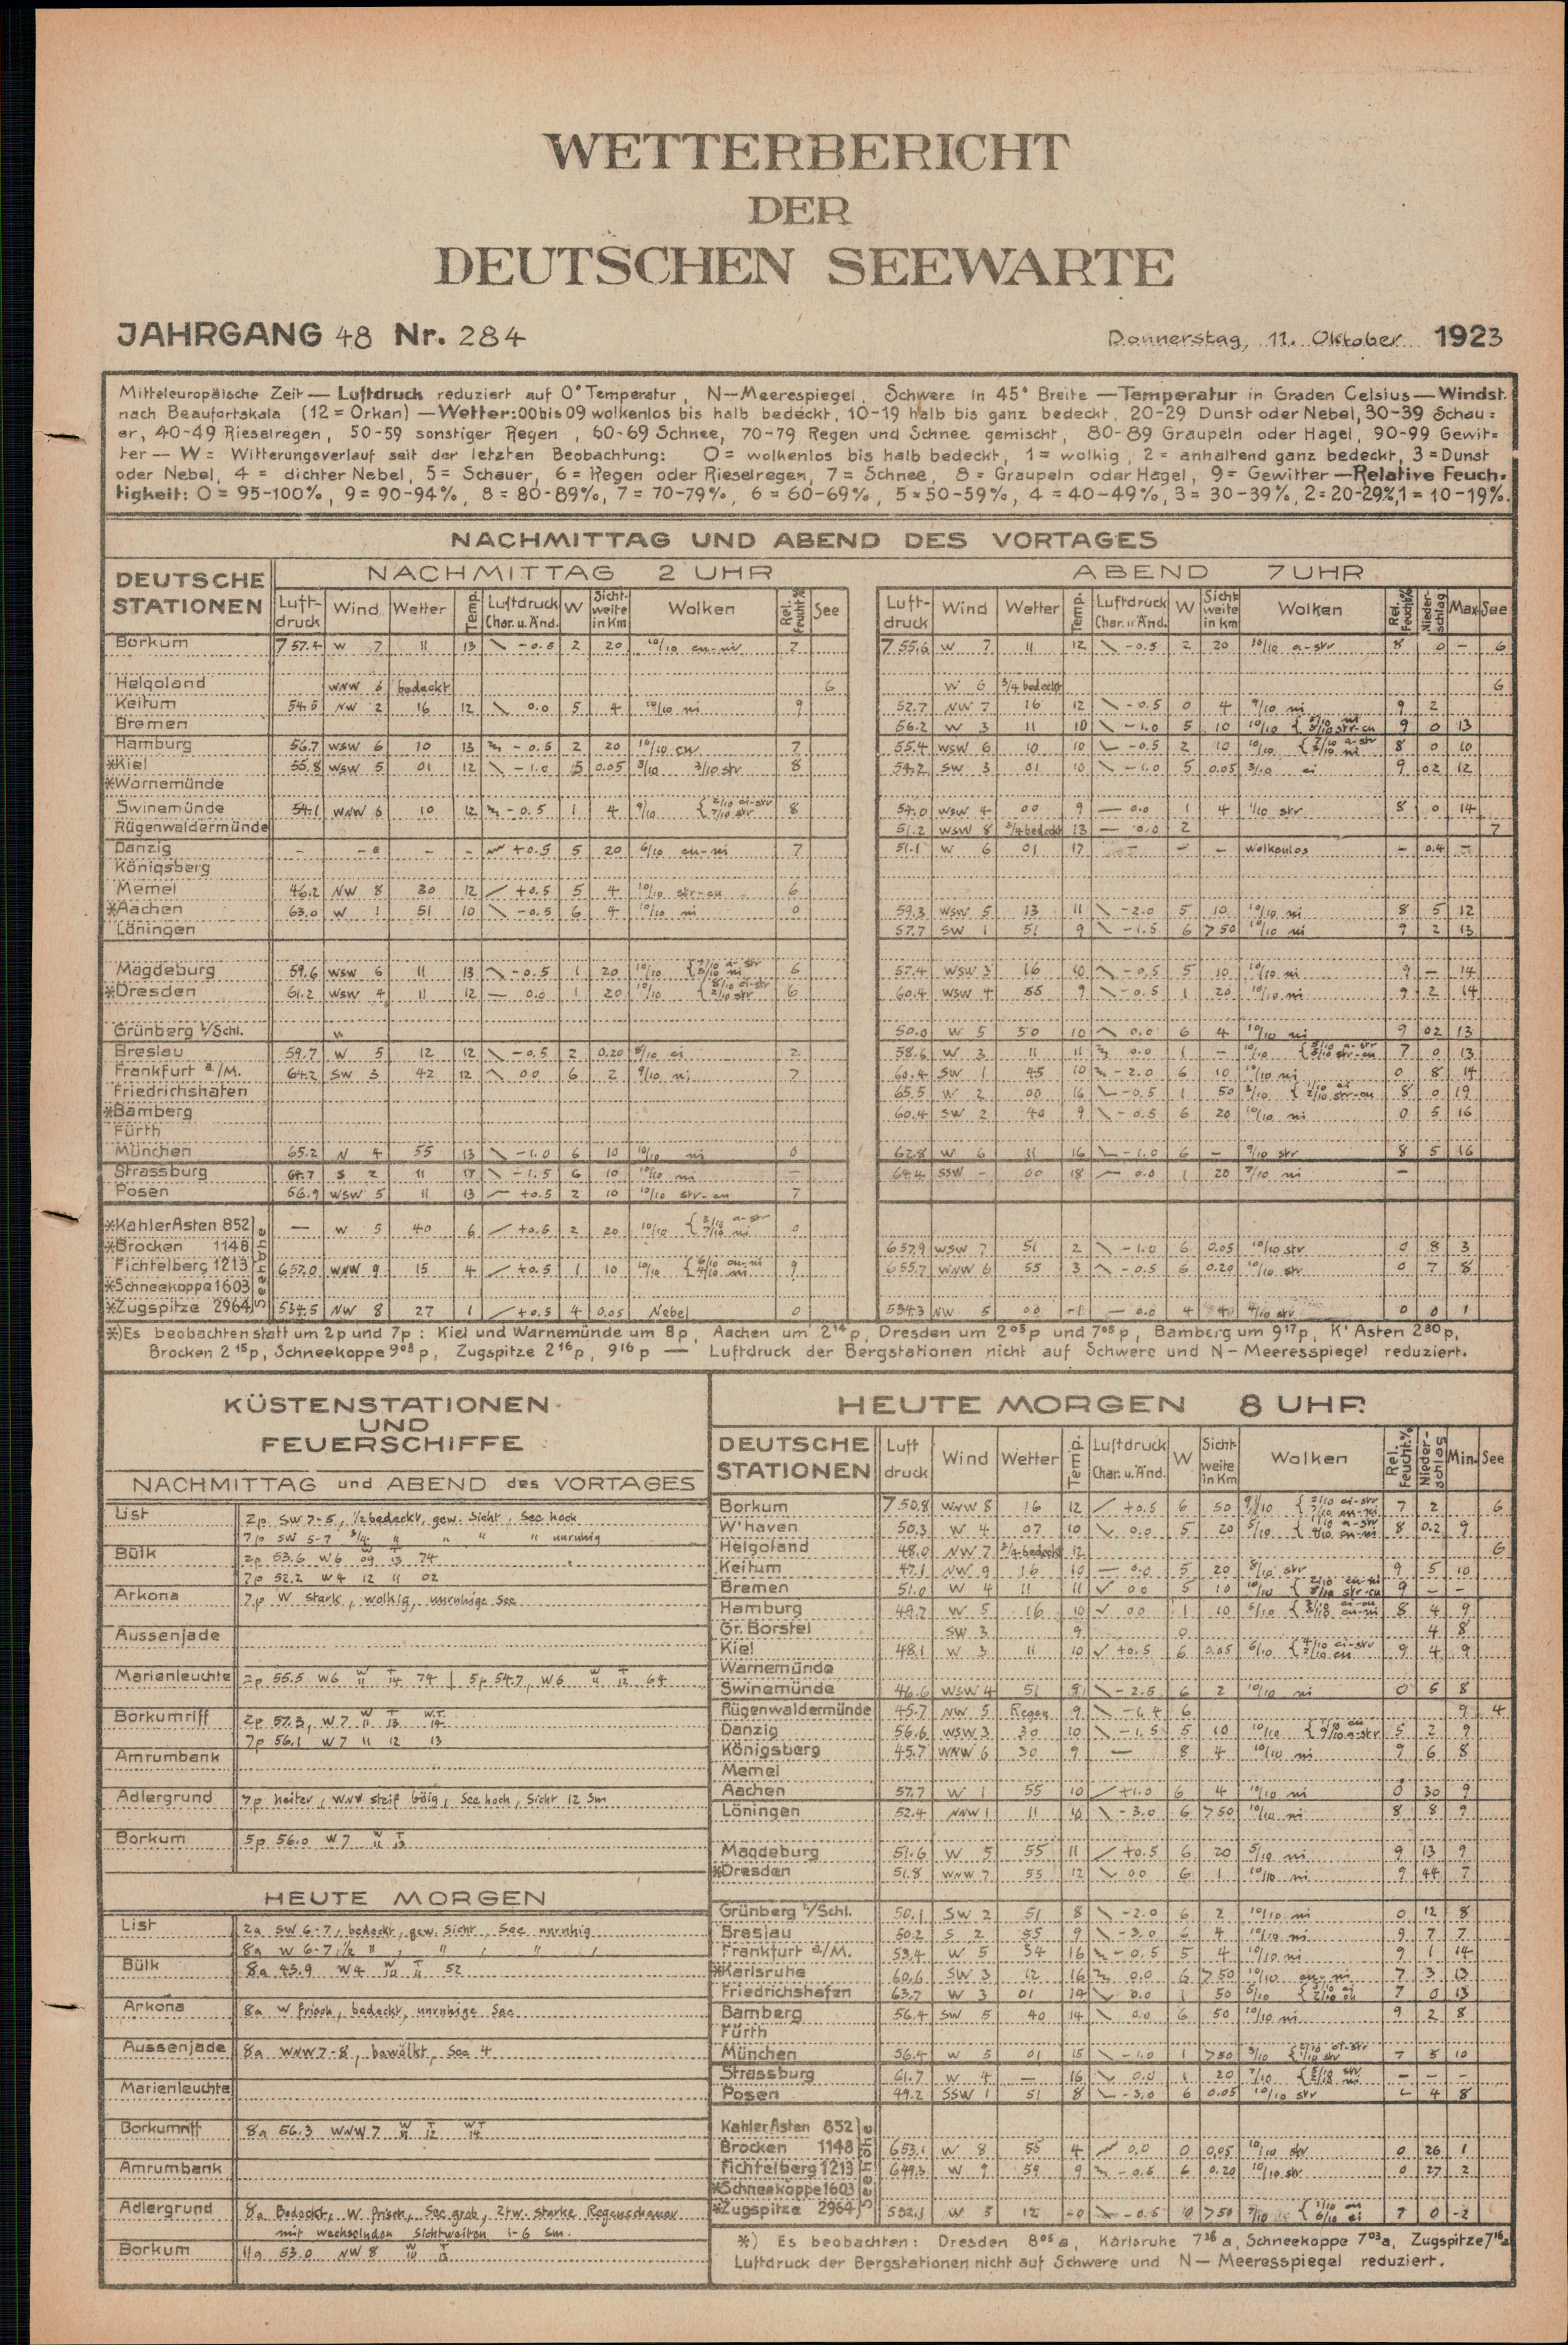 WETTERBERICHT
DER
DEUTSCHEN SEEWARTE
JAHRGANG 48 Nr. 284 Donnerstag, 11. Oktober 1923
Mitteleuropäische Zeit — Luftdruck reduziert auf 0° Temperatur, N—Meerespiegel, Schwere in 45° Breite — Temperatur in Graden Celsius — Windst.
nach Beaufortskala (12 = Orkan) — Wetter: 00 bis 09 wolkenlos bis halb bedeckt, 10-19 halb bis ganz bedeckt, 20-29 Dunst oder Nebel, 30-39 Schau=
er, 40-49 Rieselregen, 50-59 sonstiger Regen, 60-69 Schnee, 70-79 Regen und Schnee gemischt, 80-89 Graupeln oder Hagel, 90-99 Gewit=
ter — W = Witterungsverlauf seit der letzten Beobachtung: 0 = wolkenlos bis halb bedeckt, 1 = wolkig, 2 = anhaltend ganz bedeckt, 3 = Dunst
oder Nebel, 4 = dichter Nebel, 5 = Schauer, 6 = Regen oder Rieselregen, 7 = Schnee, 8 = Graupeln oder Hagel, 9 = Gewitter — Relative Feuch=
tigkeit: 0 = 95-100%, 9 = 90-94%, 8 = 80-89%, 7 = 70-79%, 6 = 60-69%, 5 = 50-59%, 4 = 40-49%, 3 = 30-39%, 2 = 20-29%, 1 = 10-19%.
NACHMITTAG UND ABEND DES VORTAGES
DEUTSCHE STATIONEN NACHMITTAG 2 UHR ABEND 7 UHR
Luft-druck Wind Wetter Temp. Luftdruck Char. u. Änd. W Sicht-weite in Km Wolken Rel. Feucht.% See Luft-druck Wind Wetter Temp. Luftdruck Char. u. Änd. W Sicht weite in Km Wolken Rel. Feucht.% Nieder-schlag Max. See
Borkum 757.4 W 7 11 13 -0.5 2 20 10/10 cu-ni 7 755.6 W 7 11 12 -0.5 2 20 10/10 a-str 8 0 — 6
Helgoland WNW 6 bedeckt 6 W 6 3/4 bedeckt 6
Keitum 54.5 NW 2 16 12 0.0 5 4 10/10 ni 9 52.7 NW 7 16 12 -0.5 0 4 9/10 ni 9 2
Bremen 56.2 W 3 11 10 -1.0 5 10 10/10 9 0 13
Hamburg 56.7 WSW 6 10 13 -0.5 2 20 10/10 cu 7 55.4 WSW 6 10 10 -0.5 2 10 10/10 8 0 10
*Kiel 55.8 WSW 5 01 12 -1.0 5 0.05 3/10 3/10 str 8 54.2 SW 3 01 10 -1.0 5 0.05 3/10 ci 9 02 12
*Warnemünde
Swinemünde 54.1 WNW 6 10 12 -0.5 1 4 9/10 { 2/10 ci-str 7/10 str 8 54.0 WSW 4 00 9 — 0.0 1 4 1/10 str 8 0 14
Rügenwaldermünde 51.2 WSW 8 3/4 bedeckt 13 — 0.0 2 7
Danzig - - - - +0.5 5 20 6/10 cu-ni 7 51.1 W 6 01 17 — — — wolkenlos — 0.4 —
Königsberg
Memel 46.2 NW 8 30 12 +0.5 5 4 10/10 str-cu 6
*Aachen 63.0 W 1 51 10 -0.5 6 4 10/10 ni 0 59.3 WSW 5 13 11 -2.0 5 10 10/10 ni 8 5 12
Löningen 57.7 SW 1 51 9 -1.5 6 >50 10/10 ni 9 2 13
Magdeburg 59.6 WSW 6 11 13 -0.5 1 20 10/10 6 57.4 WSW 3 16 10 -0.5 5 10 10/10 ni 9 — 14
*Dresden 61.2 WSW 4 11 12 — 0.0 1 20 10/10 { 8/10 ci-str 2/10 str 6 60.4 WSW 4 55 9 -0.5 1 20 10/10 ni 9 2 14
Grünberg i/Schl. W 50.0 W 5 50 10 0.0 6 4 10/10 ni 9 02 13
Breslau 59.7 W 5 12 12 -0.5 2 0.20 8/10 ci 2 58.6 W 3 11 11 0.0 1 — 10/10 7 0 13
Frankfurt a./M. 64.2 SW 3 42 12 0.0 6 2 9/10 ni 7 60.4 SW 1 45 10 -2.0 6 10 10/10 ni 0 8 14
Friedrichshafen 65.5 W 2 00 16 -0.5 1 50 3/10 8 0 19
*Bamberg 60.4 SW 2 40 9 -0.5 6 20 10/10 ni 0 5 16
Fürth
München 65.2 N 4 55 13 -1.0 6 10 10/10 ni 0 62.8 W 6 11 16 -1.0 6 — 9/10 str 8 5 16
Strassburg 64.7 S 2 11 17 -1.5 6 10 10/10 ni — 64.4 SSW — 00 18 — 0.0 1 20 7/10 ni —
Posen 56.9 WSW 5 11 13 +0.5 2 10 10/10 str-cu 7
*Kahler Asten 852 — W 5 40 6 +0.5 2 20 10/10 { 3/10 a-str 7/10 ni 0
*Brocken 1148 657.9 WSW 7 51 2 -1.0 6 0.05 10/10 str 0 8 3
Fichtelberg 1213 657.0 WNW 9 15 4 +0.5 1 10 10/10 { 6/10 cu-ni 4/10 ni 9 655.7 WNW 6 55 3 -0.5 6 0.20 10/10 str 0 7 8
*Schneekoppe 1603
*Zugspitze 2964 534.5 NW 8 27 1 +0.5 4 0.05 Nebel 0 534.3 NW 5 00 -1 — 0.0 4 40 4/10 str 0 0 1
Seehöhe
*) Es beobachten statt um 2p und 7p: Kiel und Warnemünde um 8p, Aachen um 2 14 p, Dresden um 2 05 p und 7 05 p, Bamberg um 9 17 p, K' Asten 2 30 p,
Brocken 2 15 p, Schneekoppe 9 03 p, Zugspitze 2 16 p, 9 16 p — Luftdruck der Bergstationen nicht auf Schwere und N—Meeresspiegel reduziert.
KÜSTENSTATIONEN
UND
FEUERSCHIFFE
NACHMITTAG und ABEND des VORTAGES
List 2p SW 7-5, 1/2 bedeckt, gew. Sicht, See hoch
7p SW 5-7 3/4 " " " unruhig
Bülk 2p 53.6 W 6 W 09 T 13 74
7p 52.2 W 4 12 11 02
Arkona 7p W stark, wolkig, unruhige See
Aussenjade
Marienleuchte 2p 55.5 W6 W 11 T 14 74 | 5p 54.7, W6 W 11 T 12 64
Borkumriff 2p 57.3, W 7 W 11 T 13 W.T. 14
7p 56.1 W 7 11 12 13
Amrumbank
Adlergrund 7p heiter, WNW steif böig, See hoch, Sicht 12 Sm
Borkum 5p 56.0 W 7 W 11 T 13
HEUTE MORGEN
List 2a SW 6-7, bedeckt, gew. Sicht, See unruhig
8a W 6-7, 1/2 " , " , " ,
Bülk 8a 43.9 W4 W 10 T 11 52
Arkona 8a W frisch, bedeckt, unruhige See
Aussenjade 8a WNW 7-8, bewölkt, See 4
Marienleuchte
Borkumriff 8a 56.3 WNW 7 W 11 T 12 WT 14
Amrumbank
Adlergrund 8a Bedeckt, W frisch, See grob, ztw. starke Regenschauer
mit wechselnden Sichtweiten 1-6 Sm.
Borkum 11a 53.0 NW 8 W 10 T 13
HEUTE MORGEN 8 UHR
DEUTSCHE STATIONEN Luft druck Wind Wetter Temp. Luftdruck Char. u. Änd. W Sicht weite in Km Wolken Rel. Feucht.% Nieder-schlag Min. See
Borkum 750.8 WNW 8 16 12 +0.5 6 50 9/10 { 2/10 ci-str 7/10 cu-ni 7 2 6
W'haven 50.3 W 4 07 10 0.0 5 20 5/10 { 1/10 a-str 4/10 cu-ni 8 0.2 9
Helgoland 48.0 NW 7 3/4 bedeckt 12 6
Keitum 47.1 NW 9 16 10 — 0.0 5 20 8/10 str 9 5 10
Bremen 51.0 W 4 11 11 0.0 5 10 10/10 9 — —
Hamburg 49.7 W 5 16 10 0.0 1 10 6/10 8 4 9
Gr. Borstel SW 3 9 0 4 8
Kiel 48.1 W 3 11 10 +0.5 6 0.05 6/10 { 4/10 ci-str 2/10 cu 9 4 9
Warnemünde
Swinemünde 46.6 WSW 4 51 9 -2.5 6 2 10/10 ni 0 6 8
Rügenwaldermünde 45.7 NW 5 Regen 9 6 9 4
Danzig 56.6 WSW 3 30 10 -1.5 5 10 10/10 { 1/10 cu 9/10 a-str 5 2 9
Königsberg 45.7 WNW 6 30 9 — 8 4 10/10 ni 9 6 8
Memel
Aachen 57.7 W 1 55 10 +1.0 6 4 10/10 ni 0 30 9
Löningen 52.4 NNW 1 11 10 -3.0 6 >50 10/10 ni 8 8 9
Magdeburg 51.6 W 5 55 11 +0.5 6 20 5/10 ni 9 13 9
*Dresden 51.8 WNW 7 55 12 0.0 6 1 10/10 ni 9 44 7
Grünberg i/Schl. 50.1 SW 2 51 8 -2.0 6 2 10/10 ni 0 12 8
Breslau 50.2 S 2 55 9 -3.0 6 4 10/10 ni 9 7 7
Frankfurt a/M. 53.4 W 5 54 16 -0.5 5 4 10/10 ni 9 1 14
*Karlsruhe 60.6 SW 3 12 16 0.0 6 >50 10/10 cu-ni 7 3 13
Friedrichshafen 63.7 W 3 01 14 0.0 1 50 5/10 { 3/10 ci 2/10 cu 7 0 13
Bamberg 56.4 SW 5 40 14 0.0 6 50 10/10 ni 9 2 8
Fürth
München 56.4 W 5 01 15 -1.0 1 >50 3/10 { 2/10 ci-str 1/10 str 7 5 10
Strassburg 61.7 W 4 — 16 0.0 1 20 7/10 — — —
Posen 49.2 SSW 1 51 8 -3.0 6 0.05 10/10 str 4 8
Kahler Asten 852
Brocken 1148 653.1 W 8 55 4 0.0 0 0.05 10/10 str 0 26 1
Fichtelberg 1213 649.3 W 9 59 9 -0.5 6 0.20 10/10 str 0 27 2
*Schneekoppe 1603
*Zugspitze 2964 532.1 W 5 12 -0 -0.5 10 >50 7/10 { 1/10 cu 6/10 ci 7 0 -2
Seehöhe
*) Es beobachten: Dresden 8 05 a, Karlsruhe 7 36 a, Schneekoppe 7 03 a, Zugspitze 7 16 a
Luftdruck der Bergstationen nicht auf Schwere und N—Meeresspiegel reduziert.